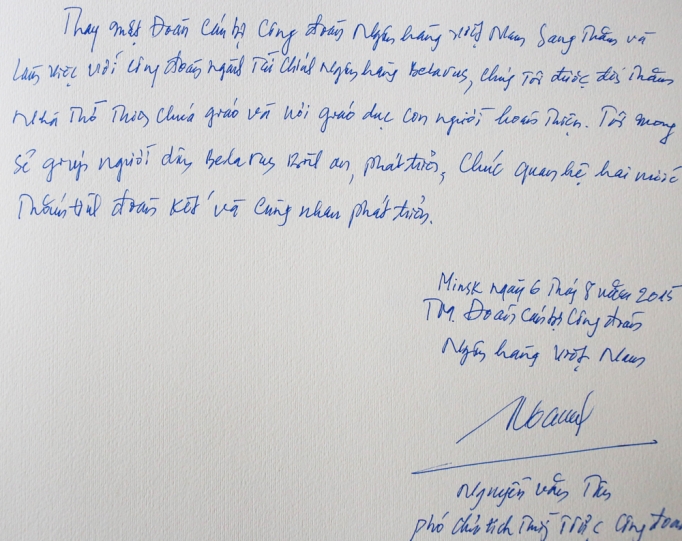 Thay mặt Đoàn cán bộ Công đoàn Ngân hàng Việt Nam sang thăm và
làm việc với Công đoàn ngành Tài chính Ngân hàng Belarus, chúng tôi được đến thăm
Nhà thờ Thiên chúa giáo và nơi giáo dục con người hoàn thiện. Tôi mong
sẽ giúp người dân Belarus bình an, phát triển, chúc quan hệ hai nước
thắm tình đoàn kết và cùng nhau phát triển.
Minsk ngày 6 tháng 8 năm 2015
TM. Đoàn cán bộ Công đoàn
Ngân hàng Việt Nam
Nguyễn Văn Tân
phó chủ tịch thường trực Công đoàn